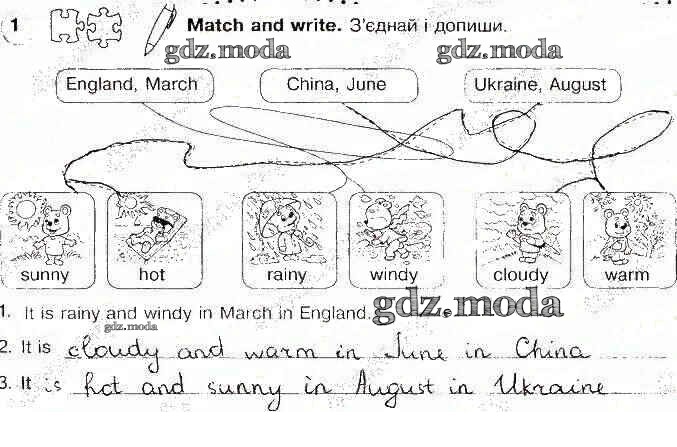 1 Match and write. З'єднай і допиши.
gdz.moda gdz.moda
England, March China, June Ukraine, August
sunny hot rainy windy cloudy warm
1. It is rainy and windy in March in England. gdz.moda
gdz.moda
2. It is cloudy and warm in June in China
3. It is hot and sunny in August in Ukraine